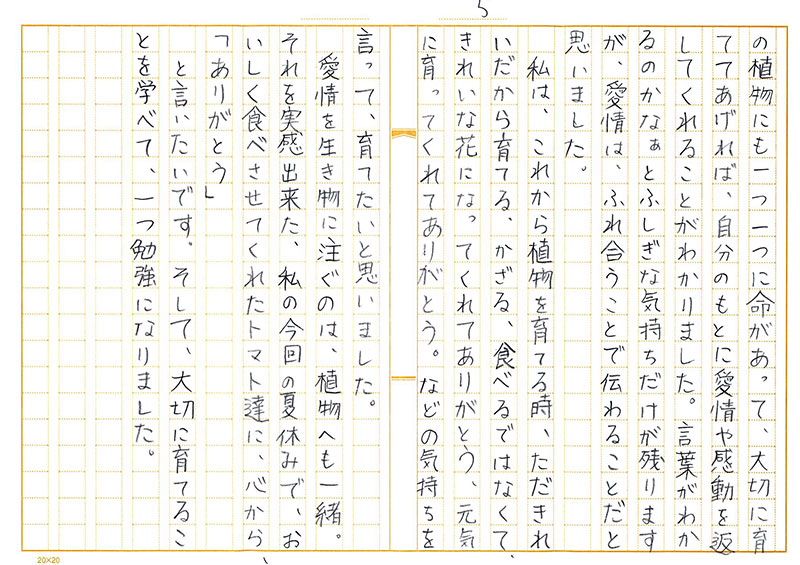 5
の植物にも一つ一つに命があって、大切に育
ててあげれば、自分のもとに愛情や感動を返
してくれることがわかりました。言葉がわか
るのかなぁとふしぎな気持ちだけが残ります
が、愛情は、ふれ合うことで伝わることだと
思いました。
私は、これから植物を育てる時、ただきれ
いだから育てる、かざる、食べるではなくて、
きれいな花になってくれてありがとう、元気
に育ってくれてありがとう。などの気持ちを
言って、育てたいと思いました。
愛情を生き物に注ぐのは、植物へも一緒。
それを実感出来た、私の今回の夏休みで、お
いしく食べさせてくれたトマト達に、心から、
「ありがとう」
と言いたいです。そして、大切に育てるこ
とを学べて、一つ勉強になりました。
20×20